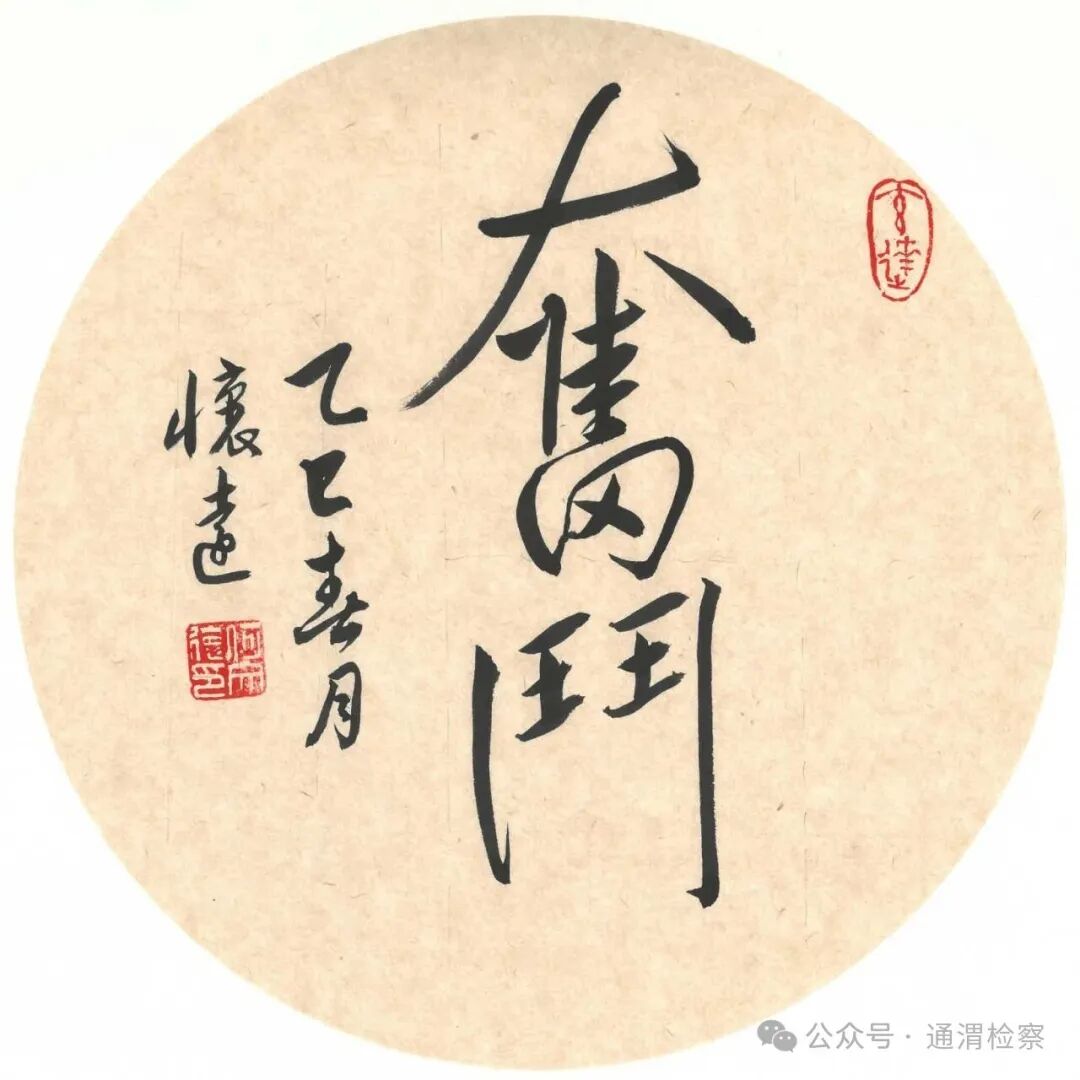 奮鬥
乙巳春月
懷遠
公众号·通渭检察